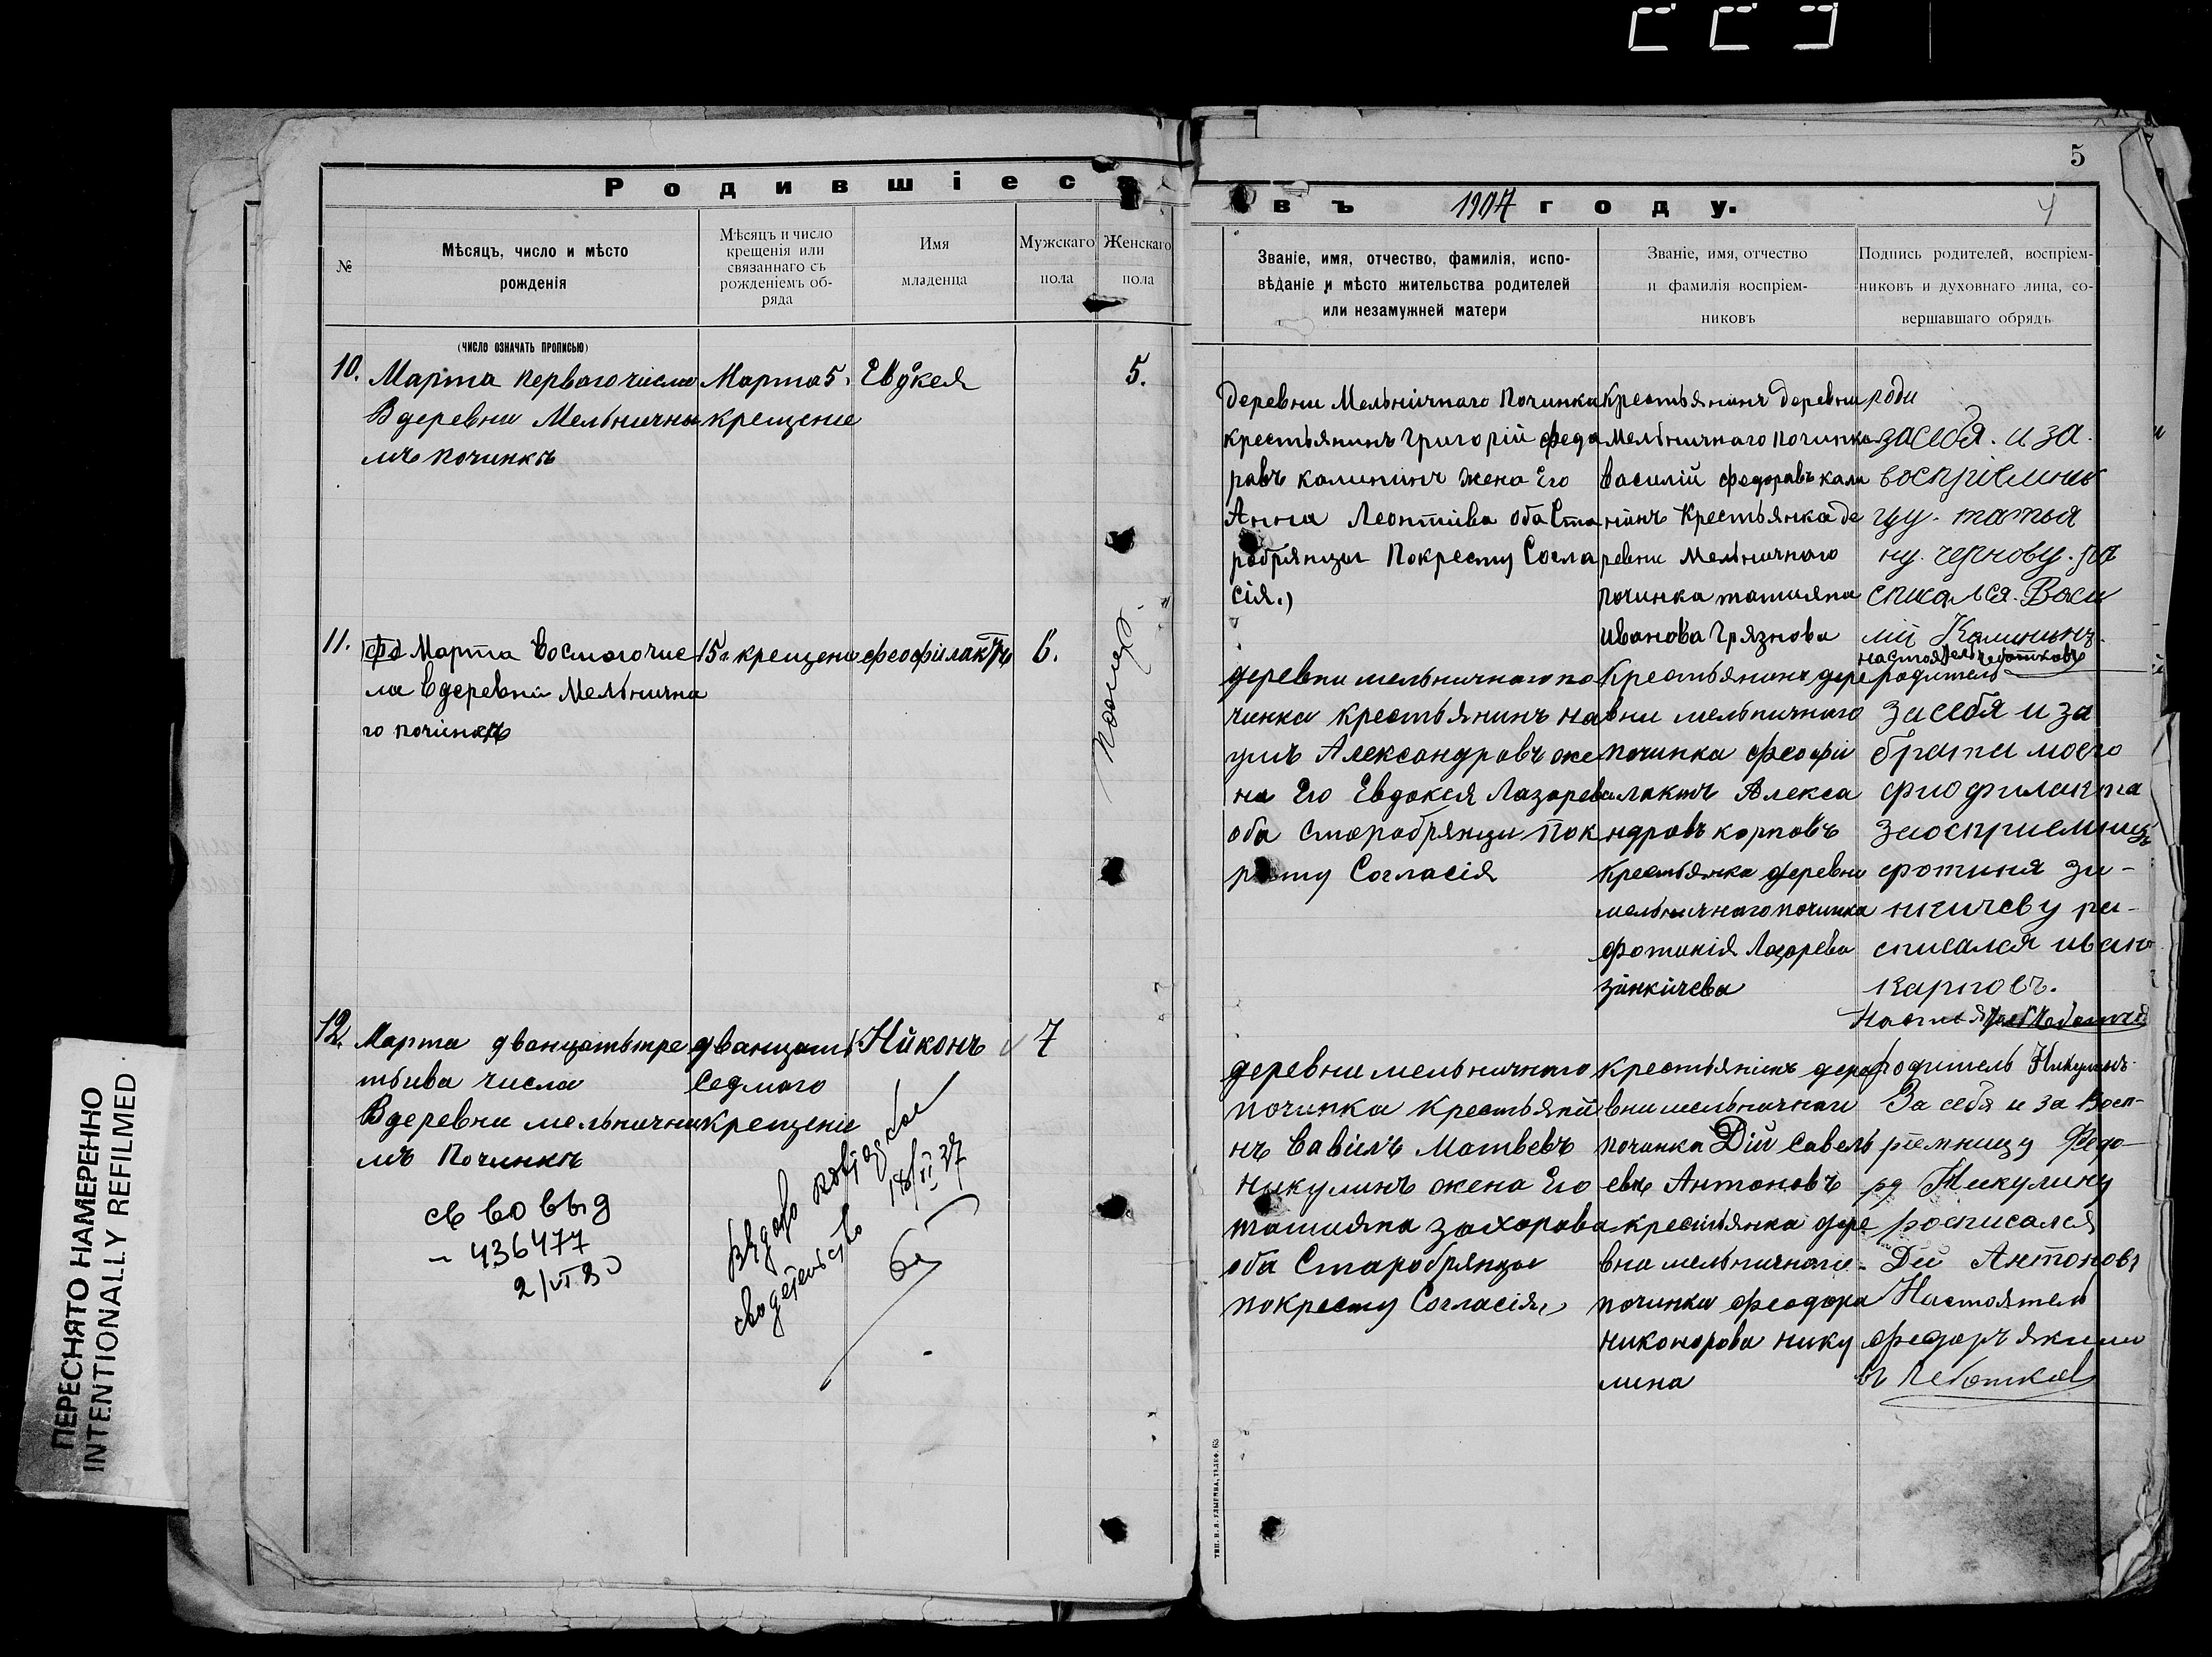 Родившіеся
въ 1907 году.
5
4
№
Мѣсяцъ, число и мѣсто
рожденія
(число означать прописью)
Мѣсяцъ и число
крещенія или
связаннаго съ
рожденіемъ об-
ряда
Имя
младенца
Мужскаго
пола
Женскаго
пола
Званіе, имя, отчество, фамилія, испо-
вѣданіе и мѣсто жительства родителей
или незамужней матери
Званіе, имя, отчество
и фамилія воспріем-
никовъ
Подпись родителей, воспріем-
никовъ и духовнаго лица, со-
вершавшаго обрядъ
10.
Марта перваго числа
В деревни Мельнични
мъ починкѣ
Марта 5.
крещение
5.
деревни Мельничнаго Починка
крестьянинъ Григорій федо
равъ калининъ жена Его
Анна Леонтива оба Ста
робрянцы Покресту Согла
сія.)
Крестьянинъ деревни
Мельничнаго починка
василій федоравъ кали
нинъ Крестьянка де
ревни Мельничнаго
починка татияна
Иванова Грязнова
роди
за себя. и за
воспріемни
цу. татья
ну. чернову. ра
списался. Васи
лій Калининъ.
11.
Марта восмого чис
ла в деревни Мельнична
го починкѣ
15 крещение
феофилактъ
6.
деревни мельничнаго по
чинка крестьянинъ на
умъ Александровъ же
на Его Евдокея Лазорева
оба Старобрянцы Пок
ресту Согласія
Крестьянинъ дере
вни мельничнаго
починка феофи
лактъ Алекса
ндравъ карповъ
Крестьянка деревни
мельничнаго починка
фотинія Лазорева
зинкичева
родитель
за себя и за
брата моего
фиофилакта
фотиня зи-
нкичеву ра-
списался иванъ
Карповъ.
12.
Марта дванцать тре
тьива числа
В деревни мельнични
мъ Починкѣ
св во выд
436477
дванцать
седмаго
крещение
Нйконъ
7
18/II 37
деревни мельничнаго
починка крестьяни
нъ Вавилъ Матвевъ
Никулинъ жена Его
татияна захорова
оба Старобрянцы
покресту Согласія,
крестьянинъ дере
вни мельничнаго
починка Дій савель
евъ Антоновъ
крестьянка дере
вни мельничнаго
починка феодора
никонорова нику
лина
родитель Никулинъ
За себя и за Восп-
ріемницу Федо-
ру Никулину
росписался
Дій Антоновъ
Настоятель
федоръ якимо
въ Чеботков
ПЕРЕСНЯТО НАМЕРЕННО
INTENTIONALLY REFILMED